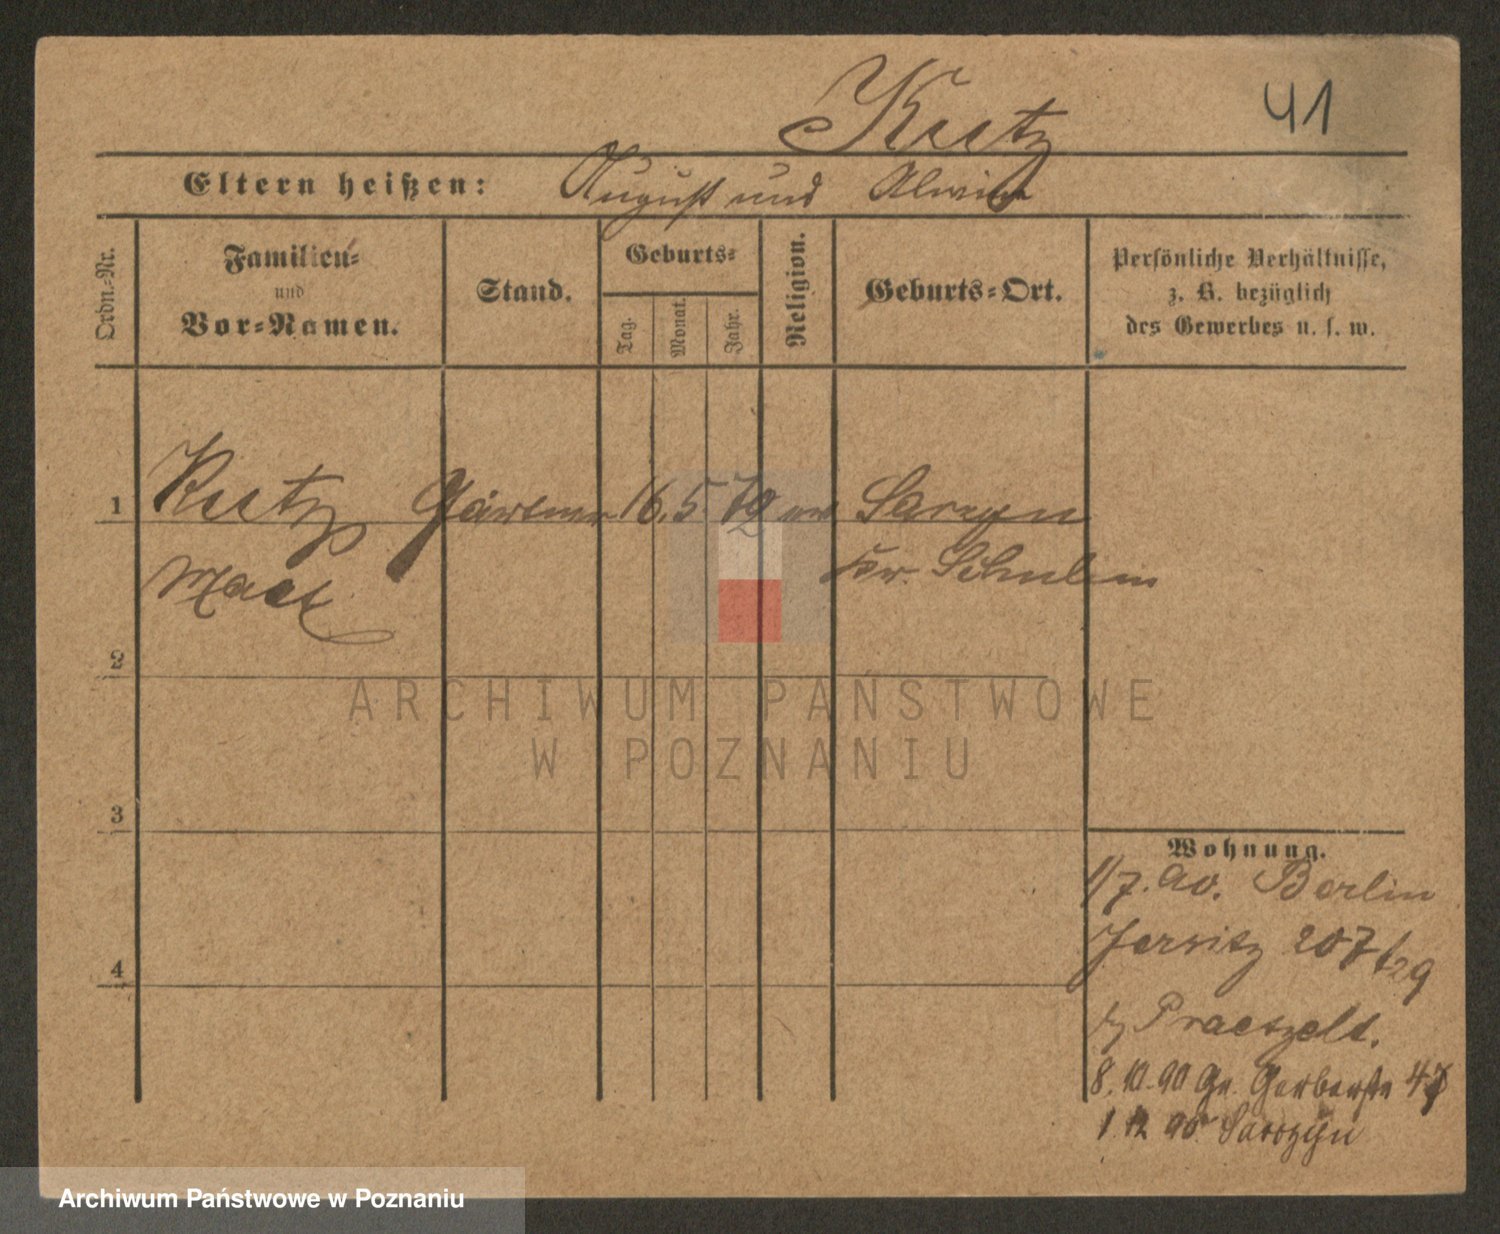 41
Kietz
Eltern heißen: August und Alwine
Ordn.-Nr.
Familien-
und
Vor-Namen.
Stand.
Geburts-
Tag.
Monat.
Jahr.
Religion.
Geburts-Ort.
Persönliche Verhältnisse,
z. B. bezüglich
des Gewerbes u. s. w.
1
Kietz Gärtner 16. 5. 79 ev Sarzyn
Max Kr. Schubin
2
ARCHIWUM PAŃSTWOWE
W POZNANIU
3
Wohnung.
1/7. 90. Berlin
Jersitz 207/29
Praetzelt.
8. 10. 90 Gr. Gerberstr 47
1. 12 90
4
Archiwum Państwowe w Poznaniu